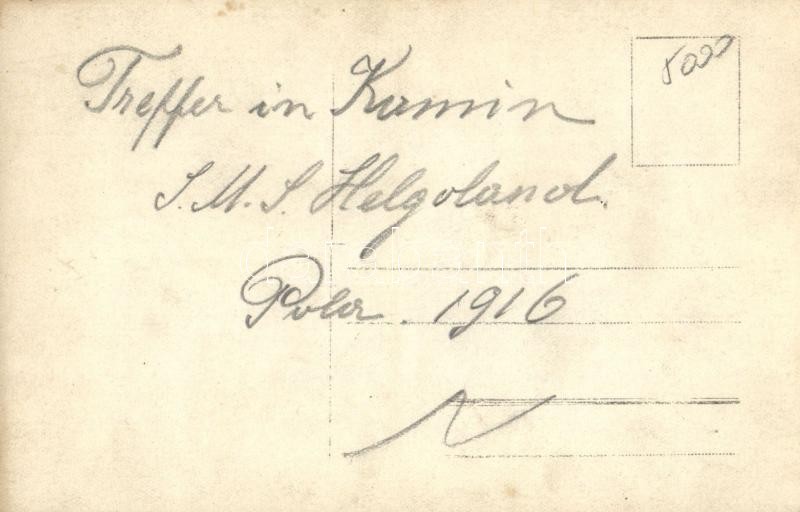 5000
Treffer in Kamin
S.M.S. Helgoland.
Pola. 1916